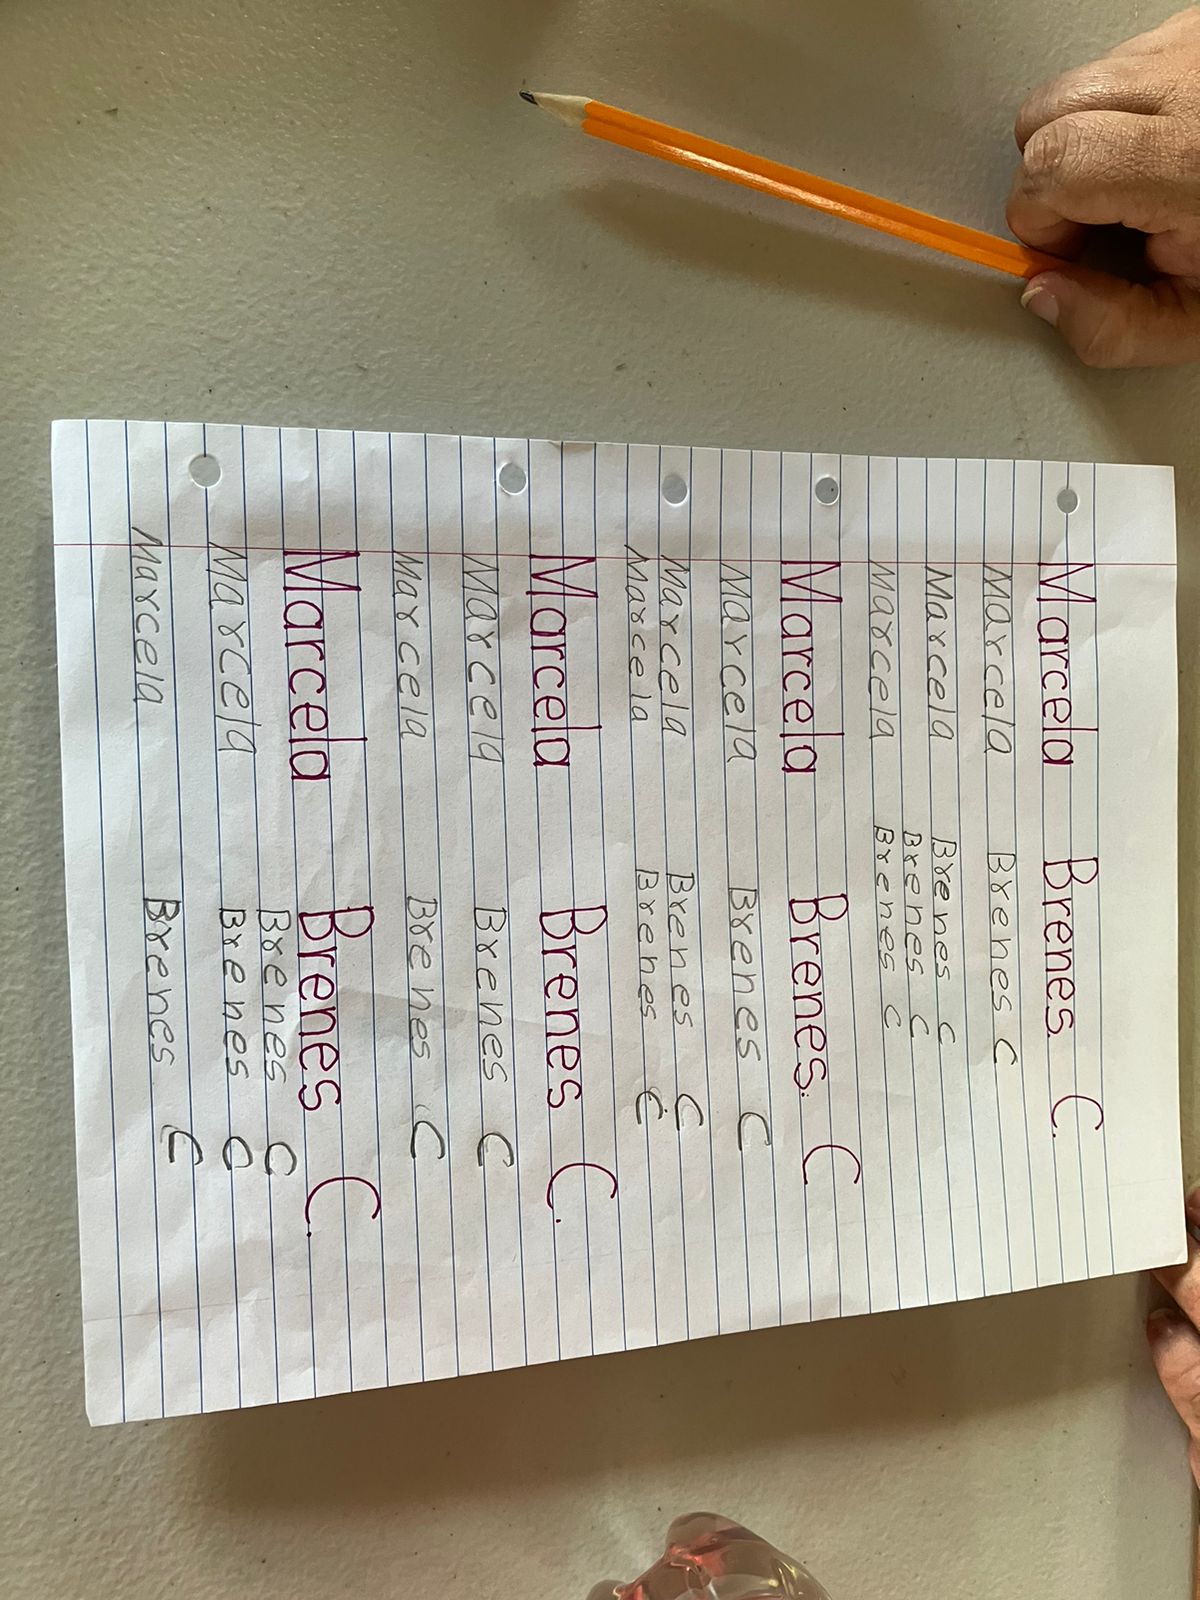 Marcela Brenes C.
Marcela Brenes C
Marcela Brenes C
Brenes C
Marcela Brenes C
Marcela Brenes. C
Marcela Brenes C
Marcela Brenes C
Marcela Brenes C
Marcela Brenes C.
Marcela Brenes C
Marcela Brenes C
Marcela Brenes C.
Brenes C
Marcela Brenes C
Marcela Brenes C